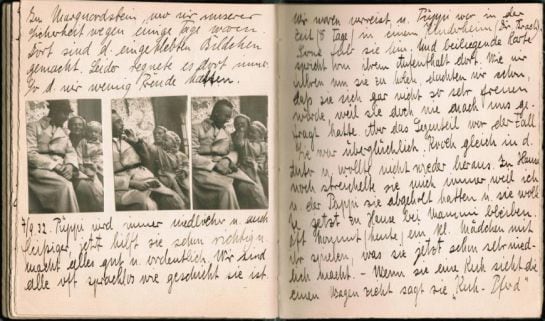 In Marquardstein, wo wir unserer
wegen einige Tage waren.
Dort sind d. eingeklebten Bildchen
gemacht. Leider regnete es dort immer
so d. wir wenig Freude hatten.
7/9 32. Püppi wird immer niedlicher u. auch
fleissiger jetzt hilft sie schon richtig u.
macht alles gut u. ordentlich. Wir sind
alle oft sprachlos wie geschickt sie ist.
Wir waren verreist u. Püppi war in der
Zeit (8 Tage) in einem Kinderheim
sie ein. Und beiliegende Karte
spricht von ihrem Aufenthalt dort. Wie wir
fuhren um sie zu holen, dachten wir schon,
daß sie sich gar nicht so sehr freuen
würde, weil sie doch nie nach uns ge-
fragt hatte. Aber das Gegenteil war der Fall.
Sie war überglücklich, kroch gleich in d.
Auto u. wollte nicht wieder heraus. Zu Hause
noch streichelte sie mich immer, weil ich
u. der Pappi sie abgeholt hatten u. sie woll
te jetzt zu Hause bei Mammi bleiben.
Oft kommt heute, ein kl. Mädchen mit
ihr spielen, was sie jetzt schon sehr nied-
lich macht. - Wenn sie eine Kuh sieht die
einen Wagen zieht sagt sie "Kuh-Pferd"